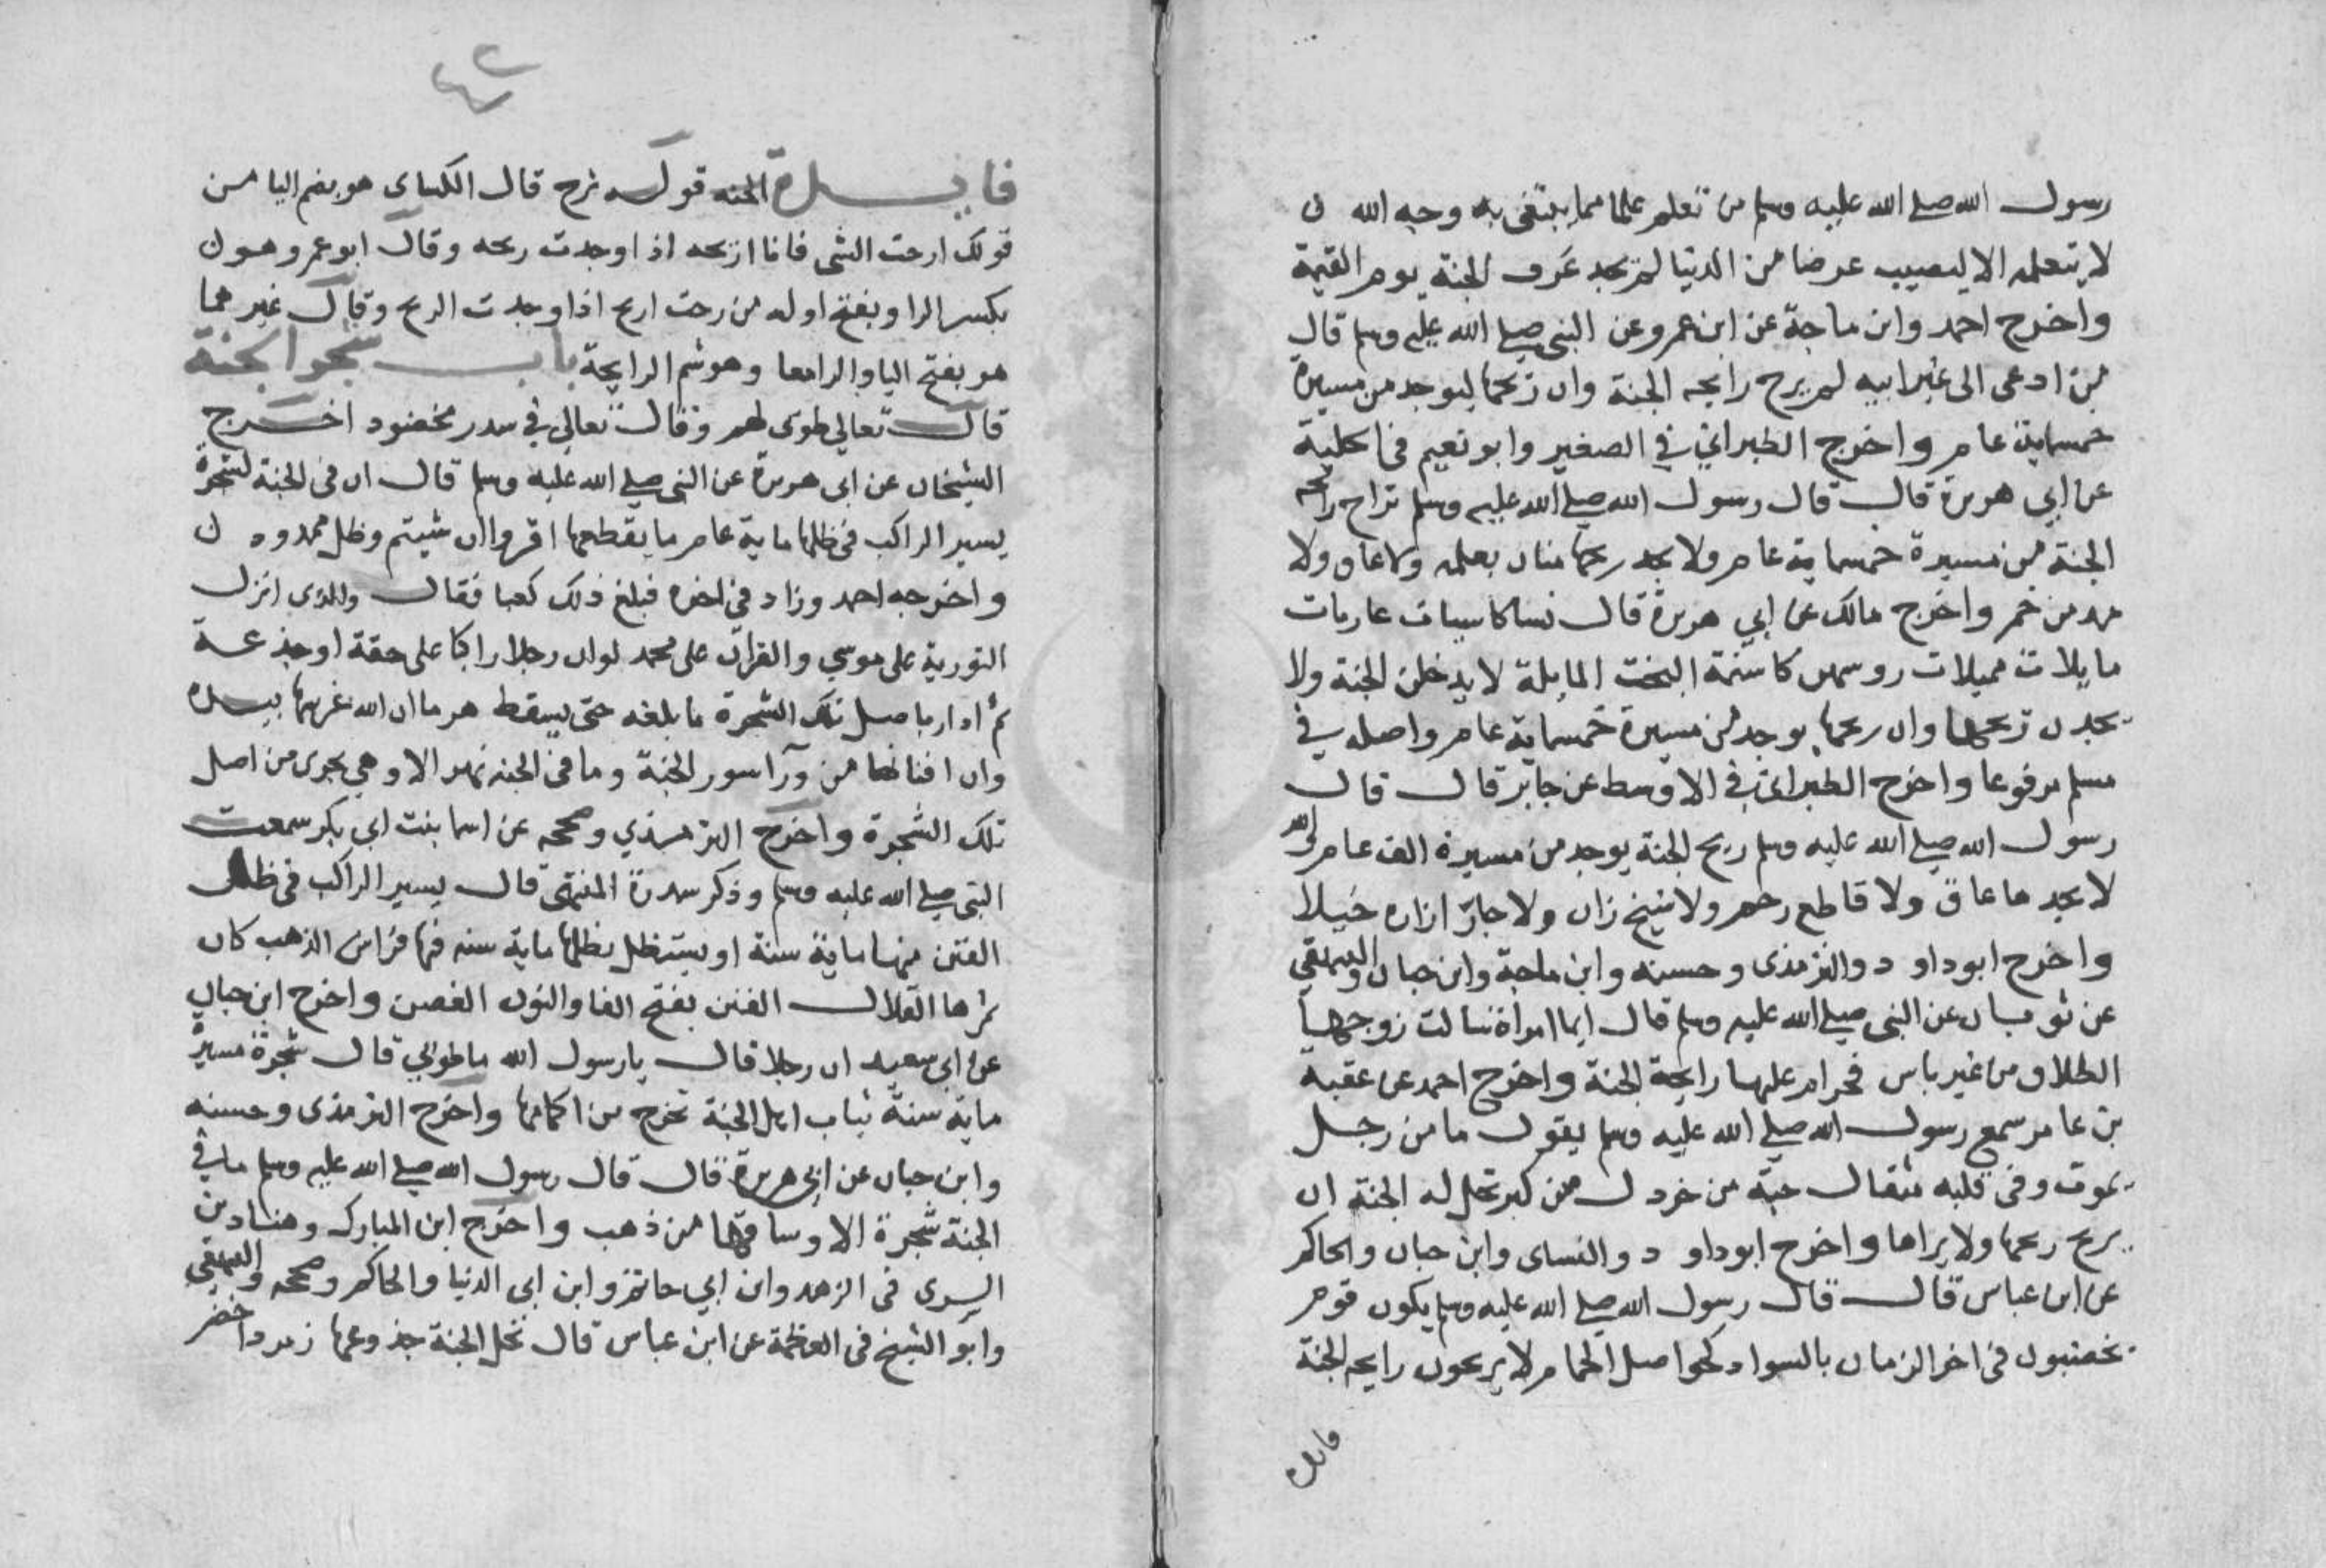 رسول الله صلى الله عليه وسلم من تعلم علما مما يبتغى به وجه الله
لا يتعلمه الا ليصيب عرضا من الدنيا لم يجد عَرف الجنة يوم القيمة
واخرج احمد وابن ماجة عن ابن عمرو عن النبى صلى الله عليه وسلم قال
من ادعى الى غير ابيه لم يرح رايحه الجنة وان ريحها ليوجد من مسيرة
خمسماية عام واخرج الطبراني في الصغير وابو نعيم فى الحلية
عن ابي هريرة قال قال رسول الله صلى الله عليه وسلم تراح رايحة
الجنة من مسيرة خمسماية عام ولا يجد ريحها منان بعلمه ولا عاق ولا
مدمن خمر واخرج مالك عن ابي هريرة قال نسا كاسيات عاريات
مايلات مميلات روسهن كاسنمة البخت المايلة لا يدخلن الجنة ولا
يجدن ريحها وان ريحها يوجد من مسيرة خمسماية عام واصله في
مسلم مرفوعا واخرج الطبرانى في الاوسط عن جابر قال قال
رسول الله صلى الله عليه وسلم ريح الجنة يوجد من مسيرة الف عام والله
لا يجدها عاق ولا قاطع رحم ولا شيخ زان ولا جارّ ازاره خيلا
واخرج ابو داود والترمذى وحسنه وابن ماجة وابن حبان والبيهقي
عن ثوبان عن النبى صلى الله عليه وسلم قال ايما امراة سالت زوجها
الطلاق من غير باس فحرام عليها رايحة الجنة واخرج احمد عن عقبه
بن عامر سمع رسول الله صلى الله عليه وسلم يقول ما من رجل
يموت وفى قلبه مثقال حبة من خردل من كبر تحل له الجنة ان
يريح ريحها ولا يراها واخرج ابو داود والنساى وابن حبان والحاكم
عن ابن عباس قال قال رسول الله صلى الله عليه وسلم يكون قوم
يخضبون فى اخر الزمان بالسواد كحواصل الحمام لا يريحون رايحه الجنة
فايدة
٤٢
فايدة الجنه قوله يرح قال الكساى هو بضم اليا من
قولك ارحت الشى فانا اريحه اذا وجدت ريحه وقال ابو عمرو هو
بكسر الرا وبفتح اوله من رحت اريح اذا وجدت الريح وقال غيرهما
هو بفتح اليا والرا معا وهو شم الرايحة باب شجر الجنة
قال تعالى طوبى لهم وقال تعالى في سدر مخضود اخرج
الشيخان عن ابى هريرة عن النبى صلى الله عليه وسلم قال ان فى الجنة لشجرة
يسير الراكب فى ظلها ماية عام ما يقطعها اقروا ان شيتم وظل ممدود
واخرجه احمد وزاد فى اخره فبلغ ذلك كعبا فقال والذى انزل
التورية على موسي والقران على محمد لو ان رجلا راكبا على حقة او جذعة
ثم ادار باصل تلك الشجرة ما بلغه حتى يسقط هرما ان الله غرسها بيده
وان افنانها من ورآ سور الجنة وما فى الجنه نهر الا وهي يجرى من اصل
تلك الشجرة واخرج الترمذي وصححه عن اسما بنت ابى بكر سمعت
النبى صلى الله عليه وسلم وذكر سدرة المنتهى قال يسير الراكب فى ظل
الفنن منها ماية سنة او يستظل بظلها ماية سنه فيها فراش الذهب كان
ثمرها القلال الفنن بفتح الفا والنون الغصن واخرج ابن حبان
عن ابى سعيد ان رجلا قال يا رسول الله ما طوبى قال شجرة مسيرة
ماية سنة ثياب اهل الجنة تخرج من اكمامها واخرج الترمذى وحسنه
وابن حبان عن ابى هريرة قال قال رسول الله صلى الله عليه وسلم ما في
الجنة شجرة الا وساقها من ذهب واخرج ابن المبارك وهناد بن
السرى فى الزهد وابن ابي حاتم وابن ابى الدنيا والحاكم وصححه والبيهقي
وابو الشيخ فى العظمة عن ابن عباس قال نخل الجنة جذوعها زمرد اخضر